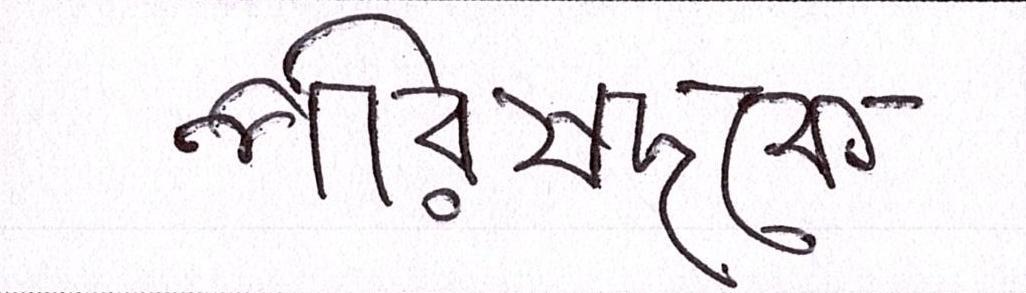 পরিষদকে